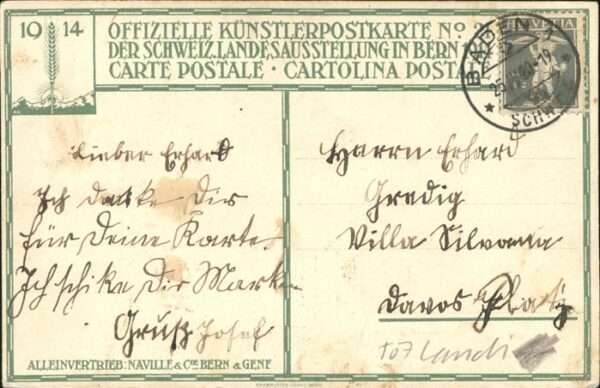 1914
OFFIZIELLE KÜNSTLERPOSTKARTE No
DER SCHWEIZ. LANDESAUSSTELLUNG IN BERN
CARTE POSTALE · CARTOLINA POST
HELVETIA
BADEN 1
SCHW
Lieber Erhard
Ich danke Dir
für Deine Karte.
Ich schike Dir Marken
Gruß Josef
Herrn Erhard
Gredig
Villa Silvana
Davos Platz
ALLEINVERTRIEB: NAVILLE & CIE BERN & GENF